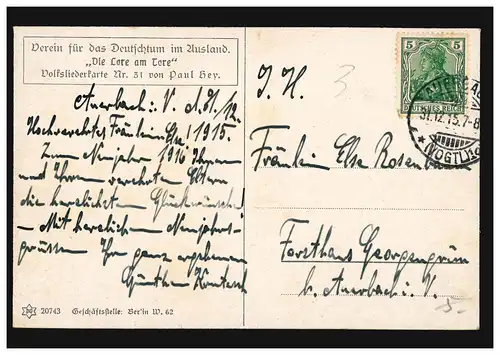 Verein für das Deutschtum im Ausland.
„Die Lore am Tore"
Volksliederkarte Nr. 31 von Paul Hey.
Auerbach i. V. d. 31/12.
Hochverehrtes Fräulein Else! 1915.
Zum Neujahr 1916 Ihnen
und Ihren verehrten Eltern
die herzlichsten Glückwünsche!
– Mit herzlichen Neujahrs-
grüssen Ihr ganz ergebener
Günther
20743 Geschäftsstelle: Berlin W. 62
I. H.
3
Fräulein Else Rosen
Forsthaus Georgengrün
b. Auerbach i. V.
5 5
DEUTSCHES REICH
31.12.15. 7-8
(VOGTL)